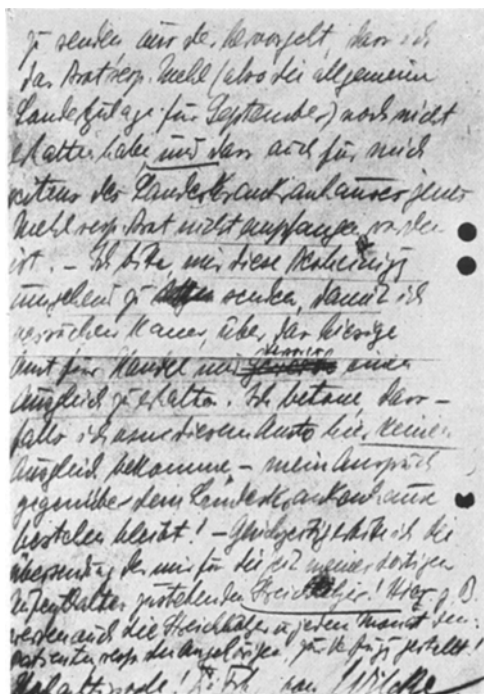 zu senden aus der hervorgeht, dass ich
das Brot resp. Mehl (also die allgemeine
Landeszulage für September) noch nicht
erhalten habe und dass auch für mich
seitens des Landeskrankenhauses jenes
Mehl resp. Brot nicht empfangen worden
ist. – Ich bitte, mir diese Bescheinigg
umgehend zu senden, damit ich
versuchen kann, über das hiesige
Amt für Handel und einen
Ausgleich zu erhalten. Ich betone, dass –
falls ich von diesem Amte hier keinen
Ausgleich bekomme – mein Anspruch
gegenüber dem Landeskrankenhause
bestehen bleibt! – Gleichzeitig erbitte ich die
Übersendung der mir für die Zeit meines dortigen
Aufenthaltes zustehenden Streichhölzer! Hier z. B.
werden auch die Streichhölzer in jedem Monat den
Patienten resp. den Angehörigen zur Verfügg gestellt!
von